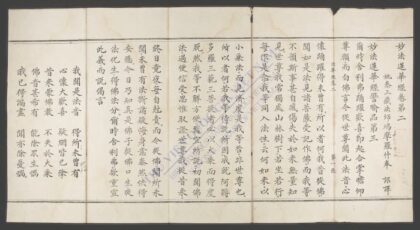 妙法蓮華經卷第二
姚秦三藏法師鳩摩羅什奉 詔譯
妙法蓮華經譬喻品第三
爾時舍利弗踊躍歡喜即起合掌瞻仰
尊顏而白佛言今從世尊聞此法音心
懷踊躍得未曾有所以者何我昔從佛
聞如是法見諸菩薩受記作佛而我等
不預斯事甚自感傷失於如來無量知
見世尊我常獨處山林樹下若坐若行
每作是念我等同入法性云何如來以
小乘法而見濟度是我等咎非世尊也
所以者何若我等待說所因成就阿耨
多羅三藐三菩提者必以大乘而得度
脫然我等不解方便隨宜所說初聞佛
法遇便信受思惟取證世尊我從昔來
終日竟夜每自剋責而今從佛聞所未
聞未曾有法斷諸疑悔身意泰然快得
安隱今日乃知真是佛子從佛口生從
法化生得佛法分爾時舍利弗欲重宣
此義而說偈言
我聞是法音 得所未曾有
心懷大歡喜 疑網皆已除
昔來蒙佛教 不失於大乘
佛音甚希有 能除眾生惱
我已得漏盡 聞亦除憂惱